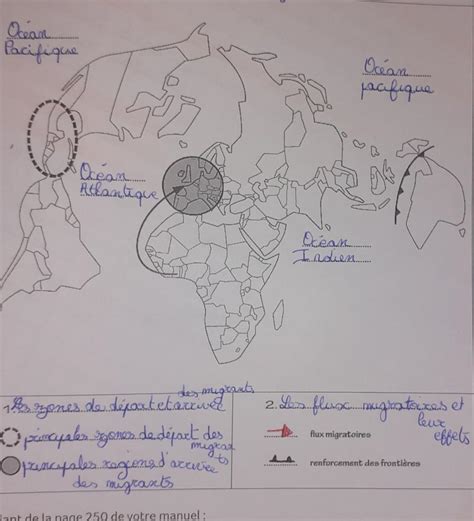 Océan
Pacifique
Océan
pacifique
Océan
Atlantique
Océan
Indien
des migrants
1. Les zones de départ et arrivée
principales zones de départ des
migrants
principales régions d'arrivée
des migrants
2. Les flux migratoires et
leur
effets
flux migratoires
renforcement des frontières
lant de la page 250 de votre manuel :